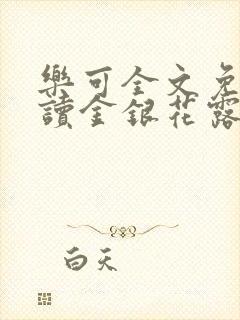 樂可全文免
讀金銀花露
白天